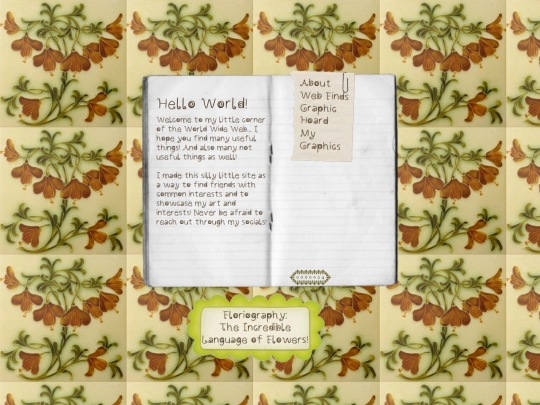 Hello World!
Welcome to my little corner
of the World Wide Web... I
hope you find many useful
things! And also many not
useful things as well!
I made this silly little site as
a way to find friends with
common interests and to
showcase my art and
interests! Never be afraid to
reach out through my socials!
About
Web Finds
Graphic
Hoard
My
Graphics
Floriography:
The Incredible
Language of Flowers!